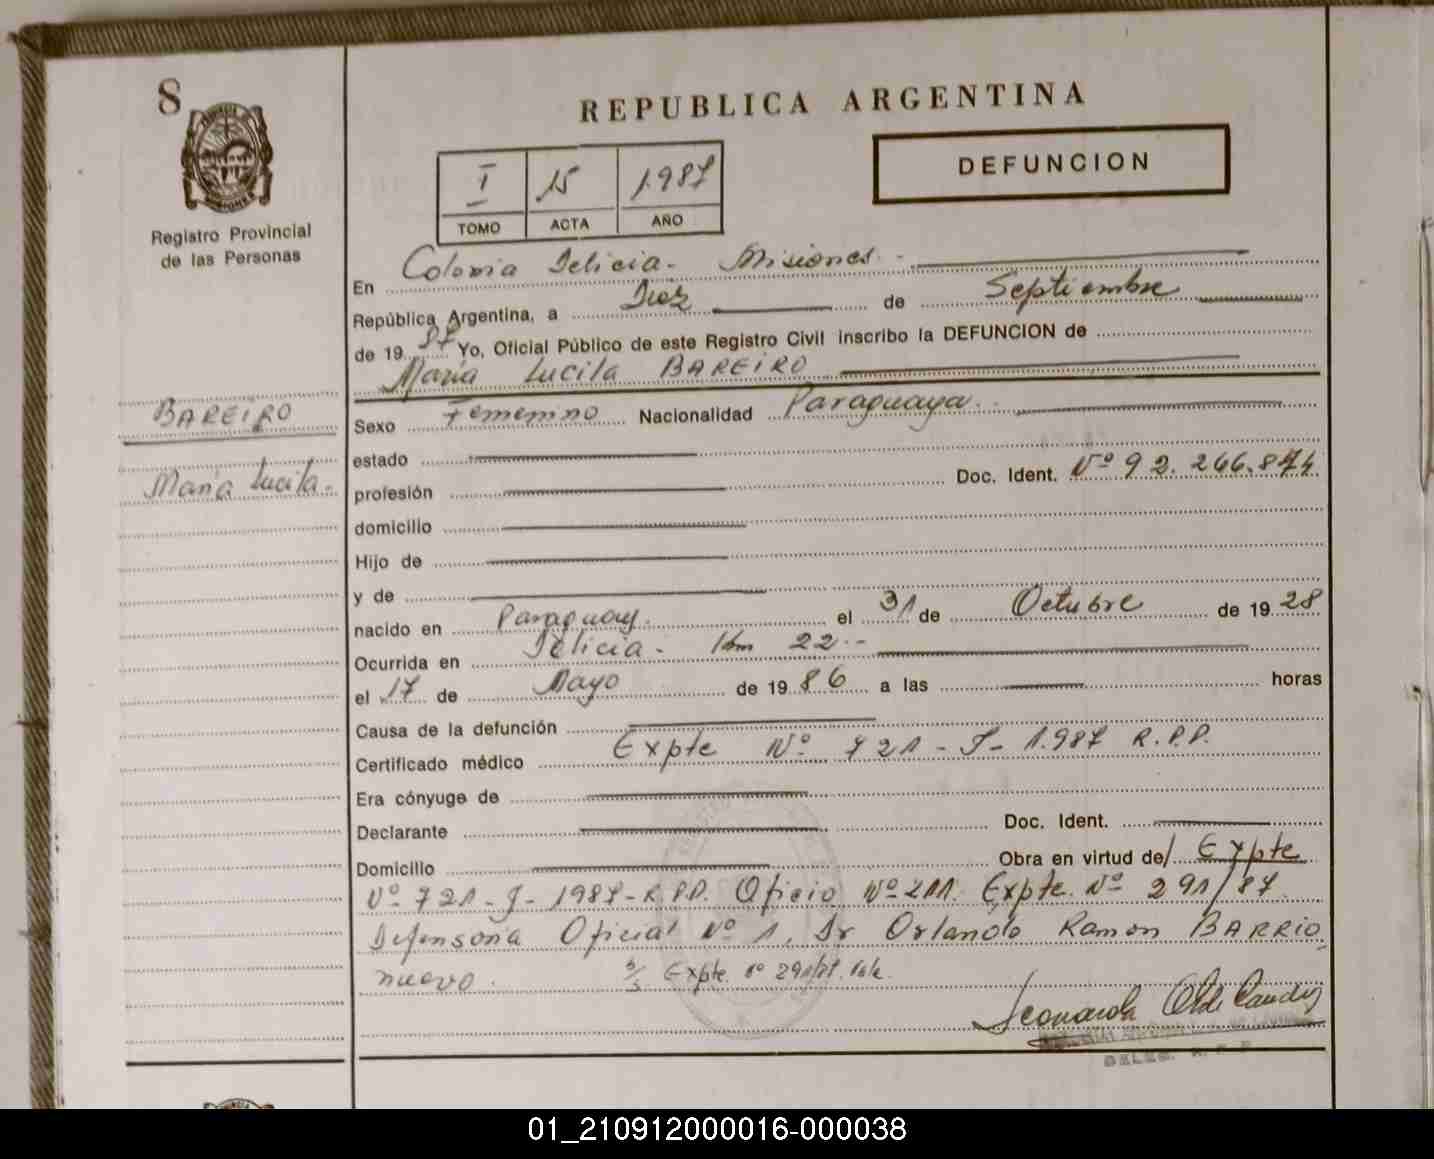 8
REPUBLICA ARGENTINA
DEFUNCION
I 15 1.987
TOMO ACTA AÑO
Registro Provincial
de las Personas
En Colonia Delicia - Misiones -
República Argentina, a Diez de Septiembre
de 19 87 Yo, Oficial Público de este Registro Civil inscribo la DEFUNCION de
María Lucila BAREIRO
BAREIRO
María Lucila.
Sexo Femenino Nacionalidad Paraguaya.
estado
profesión Doc. Ident. Nº 92.266.874
domicilio
Hijo de
y de
nacido en Paraguay. el 31 de Octubre de 19 28
Ocurrida en Delicia - Km 22 -
el 17 de Mayo de 19 86 a las horas
Causa de la defunción
Certificado médico Expte Nº 721 - J - 1.987 R.P.P.
Era cónyuge de
Declarante Doc. Ident.
Domicilio Obra en virtud de/ Expte
Nº 721 - J - 1987 - R.P.P. Oficio Nº 211. Expte. Nº 291/87
Defensoria Oficial Nº 1, Dr Orlando Ramon BARRIO
nuevo. Expte. nº 291/87
01_210912000016-000038